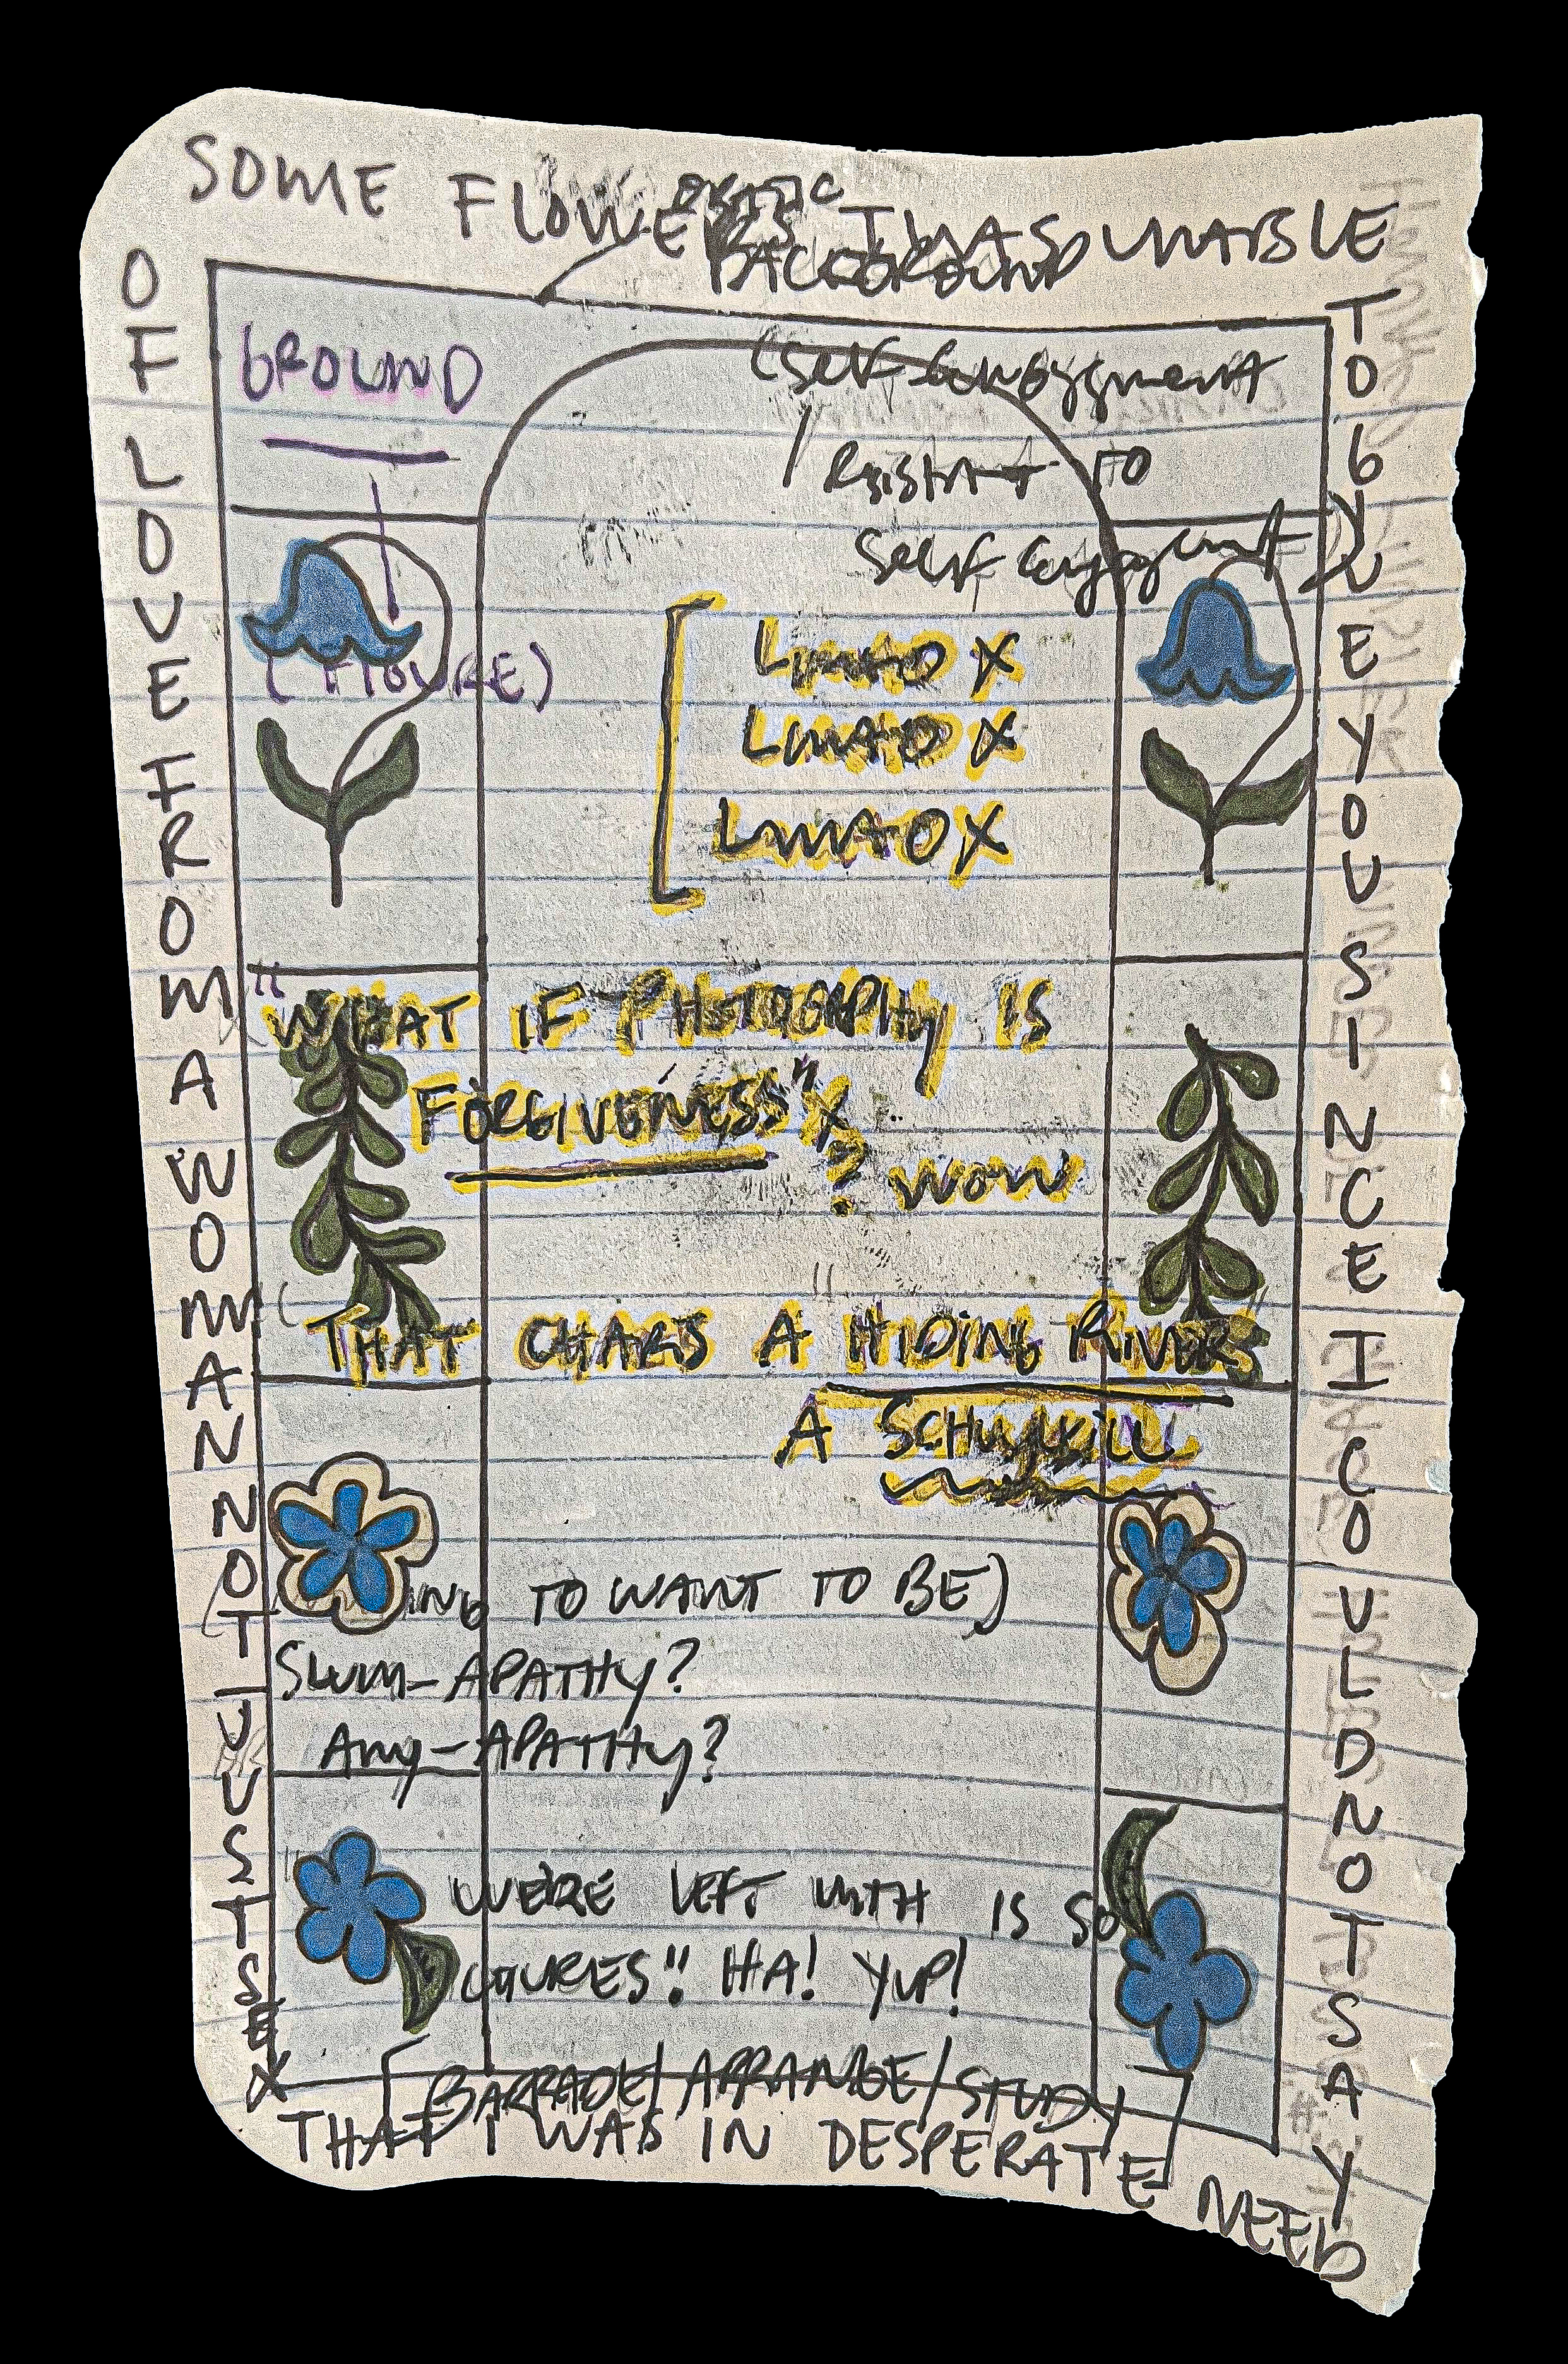 SOME FLOWERS I WAS UNABLE
TO GIVE YOU SINCE I COULD NOT SAY
THAT I WAS IN DESPERATE NEED
OF LOVE FROM A WOMAN NOT JUST SEX
BACKGROUND
GROUND
(FIGURE)
(SELF
/ RESISTANT TO
SELF
[ LMAO X
LMAO X
LMAO X
"WHAT IF PHOTOGRAPHY IS
FORGIVENESS" X
? WOW
THAT CHARS A "HIDING RIVER"
A SCHUYLKILL
TO WANT TO BE)
SLUM-APATHY?
ANY-APATHY?
WE'RE LEFT WITH IS SO
HA! YUP!
[BARRADE/ARRANGE/STUDY]